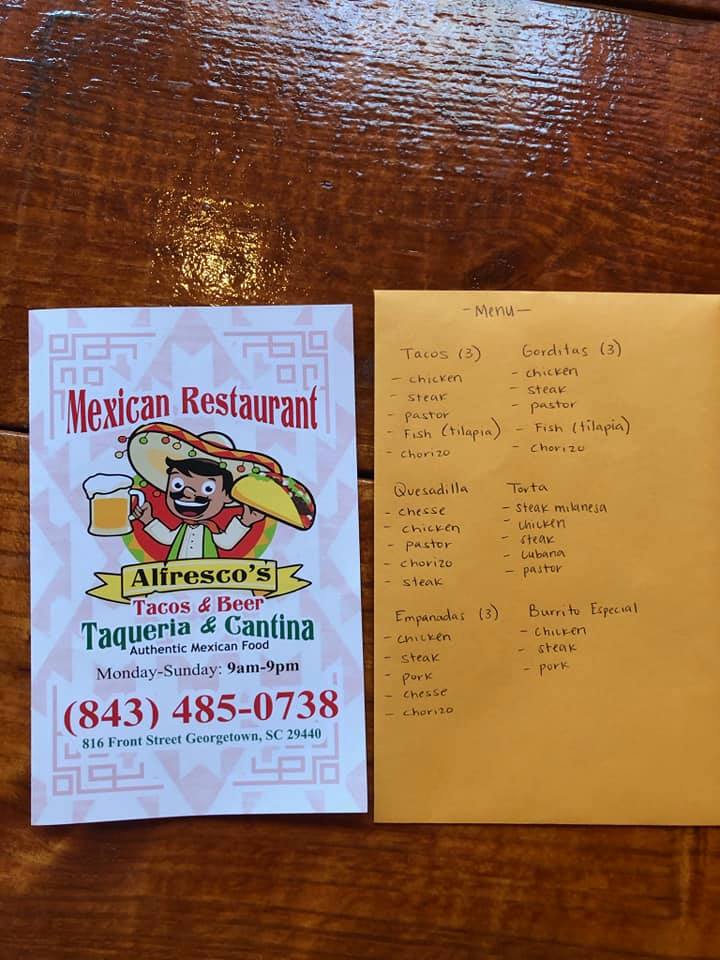 Mexican Restaurant
Alfresco's
Tacos & Beer
Taqueria & Cantina
Authentic Mexican Food
Monday-Sunday: 9am-9pm
(843) 485-0738
816 Front Street Georgetown, SC 29440
- Menu -
Tacos (3)
- chicken
- steak
- pastor
- Fish (tilapia)
- chorizo
Gorditas (3)
- chicken
- steak
- pastor
- Fish (tilapia)
- chorizo
Quesadilla
- chesse
- chicken
- pastor
- chorizo
- steak
Torta
- steak milanesa
- chicken
- steak
- cubana
- pastor
Empanadas (3)
- chicken
- steak
- pork
- chesse
- chorizo
Burrito Especial
- chicken
- steak
- pork